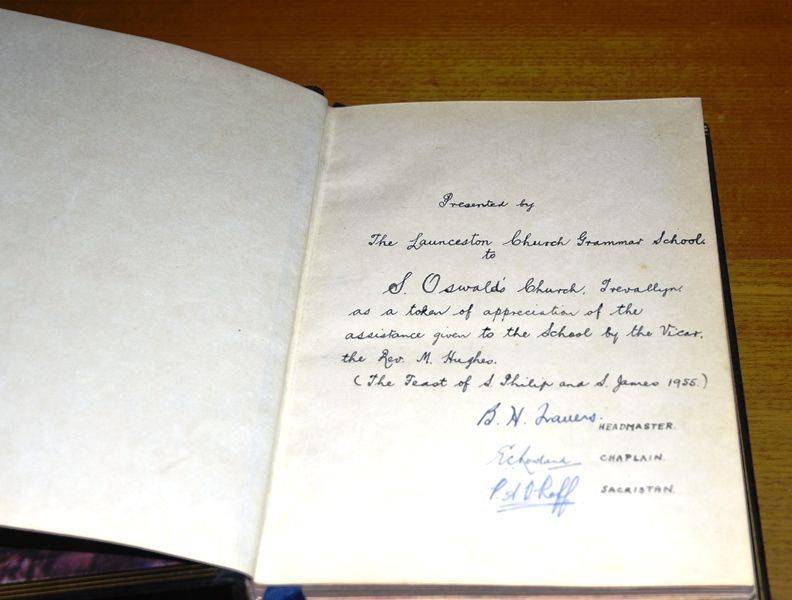 Presented by
The Launceston Church Grammar School.
to
S. Oswald's Church, Trevallyn.
as a token of appreciation of the
assistance given to the School by the Vicar.
the Rev. M. Hughes.
(The Feast of S. Philip and S. James 1955.)
B. H. Travers. HEADMASTER.
CHAPLAIN.
SACRISTAN.